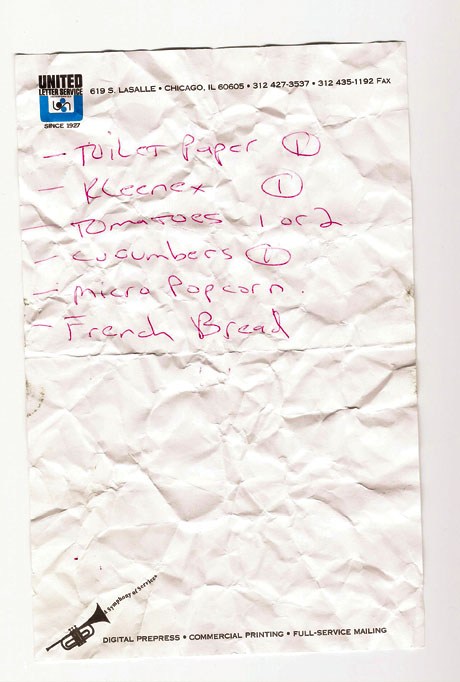 UNITED
LETTER SERVICE
SINCE 1927
619 S. LASALLE • CHICAGO, IL 60605 • 312 427-3537 • 312 435-1192 FAX
- Toilet Paper ①
- Kleenex ①
- Tomatoes 1 or 2
- cucumbers ①
- micro Popcorn.
- French Bread
A Symphony of Services
DIGITAL PREPRESS • COMMERCIAL PRINTING • FULL-SERVICE MAILING